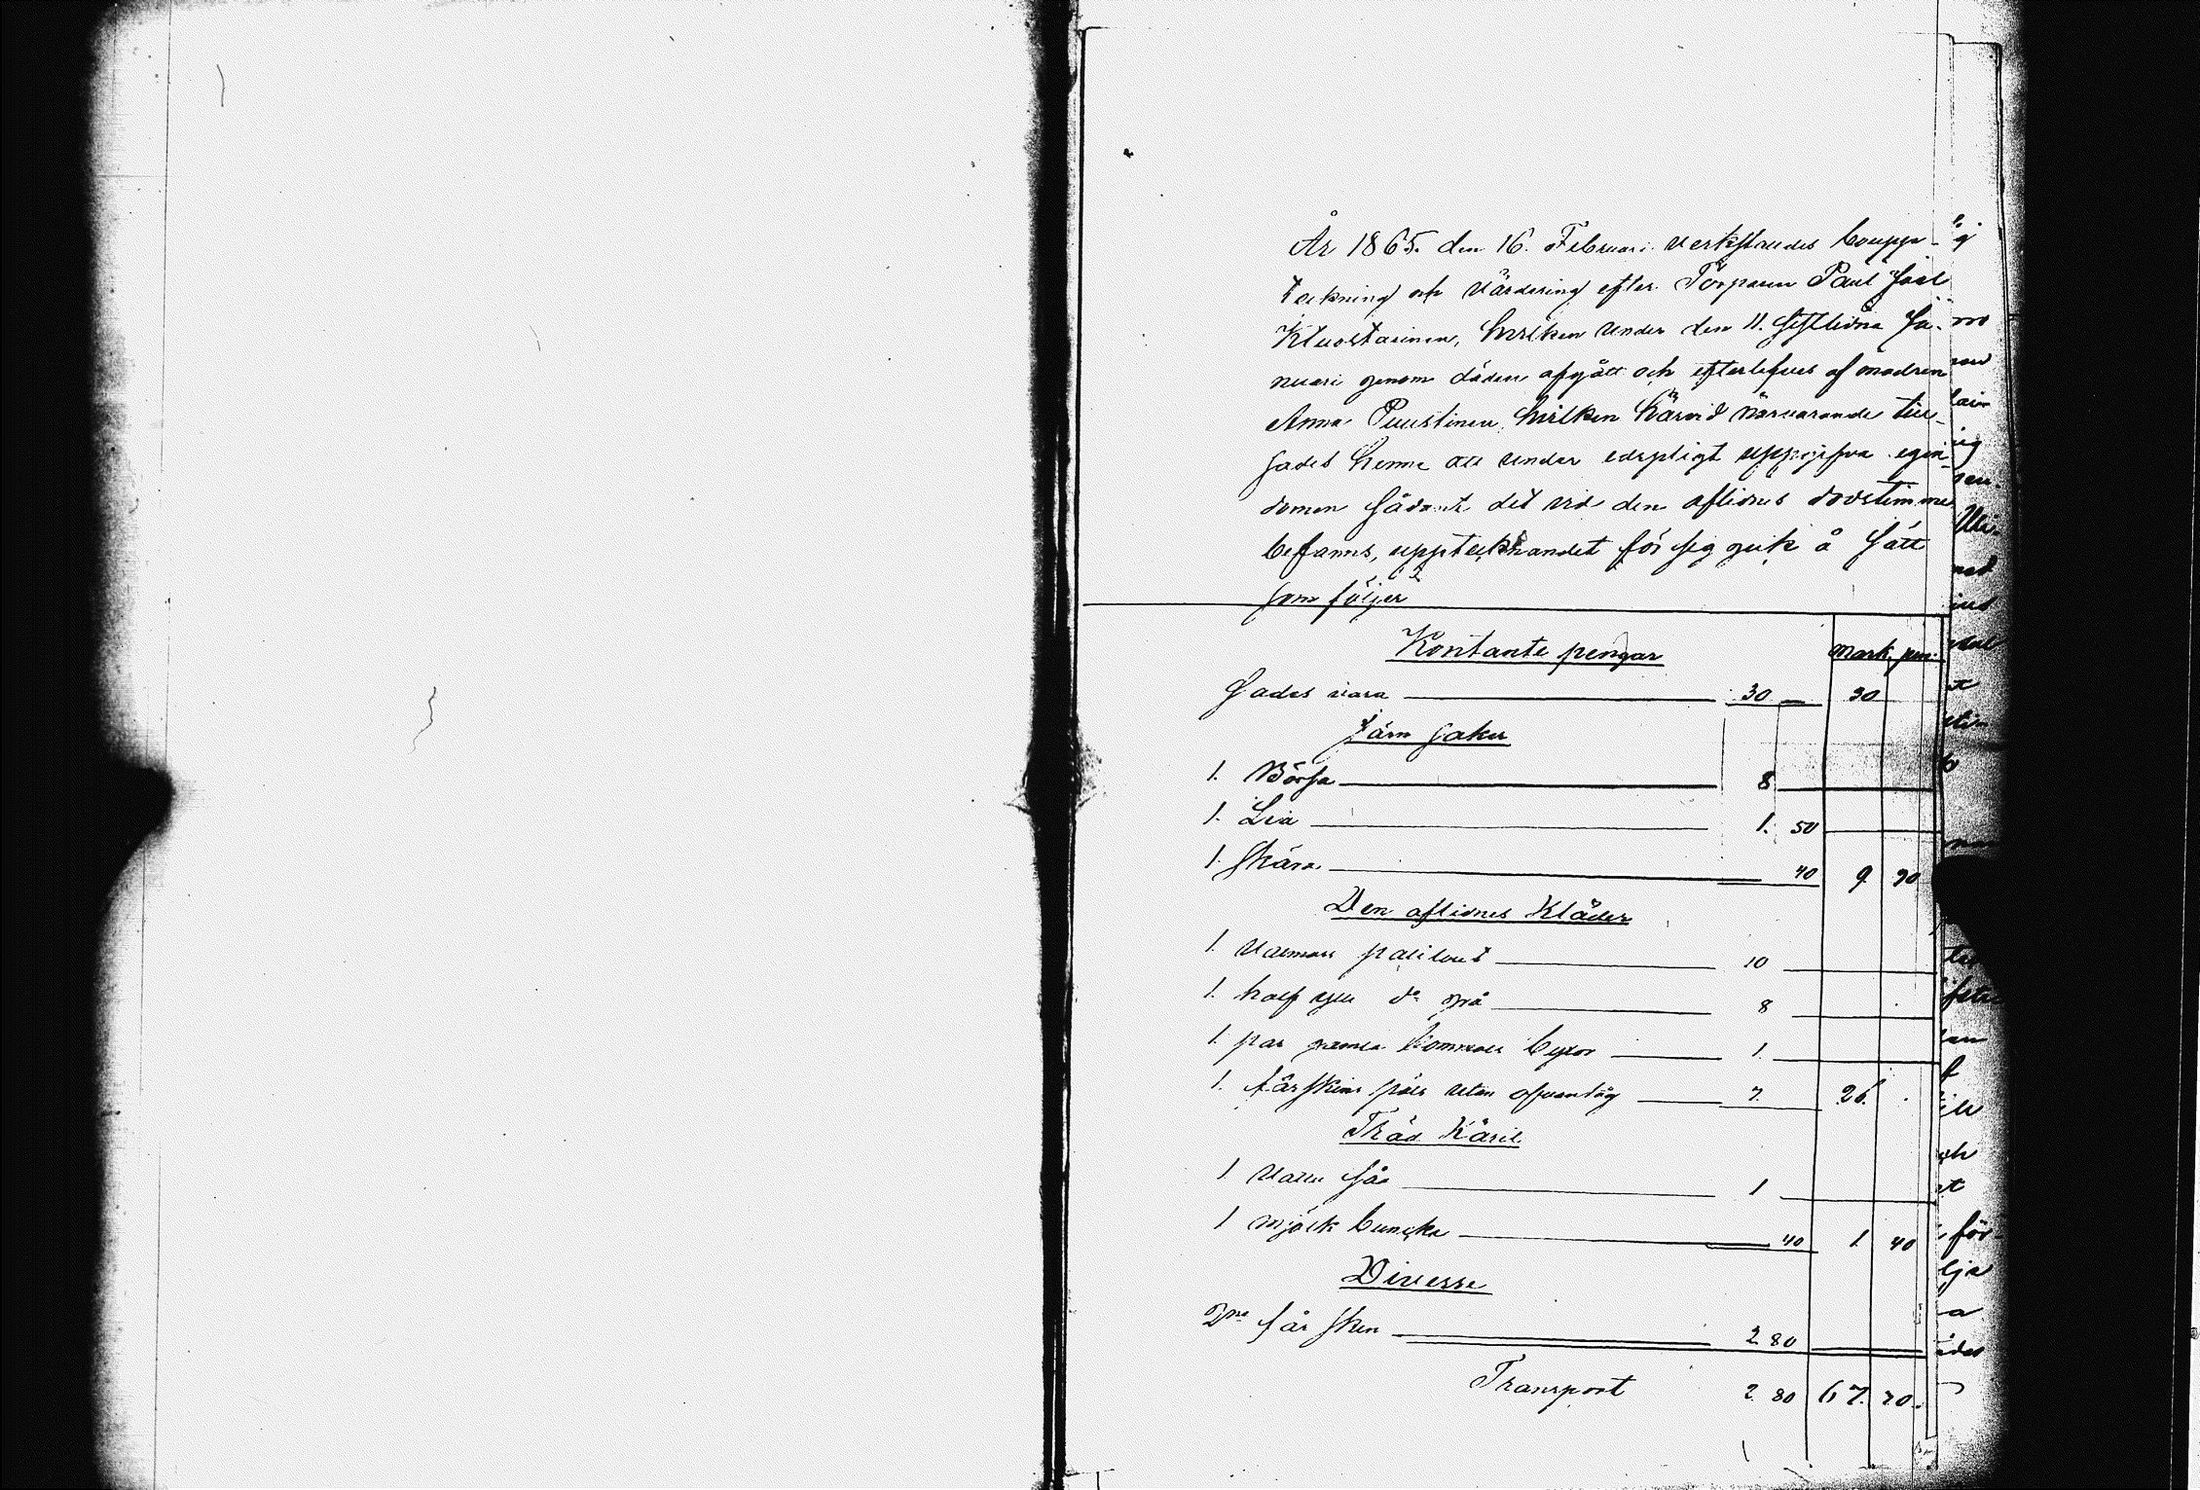 År 1865. den 16. Februari verkstäldes bouppteckning
teckning och Värdering efter Torparen Paul Joel
Kluostarinen, hvilken under den 11. sistlidne Ja-
nuari genom döden afgått och efterlefves af modren
Anna Puustinen, hvilken härvid närvarande till-
sades henne att under edspligt uppgifva egen-
domen sådant det vid den aflidnes dödstimme
befanns, upptecknandet för sig gick å sätt
som följer
Kontante pengar mark. pen.
Sades vara 30 — 30
Järn saker
1. Börsa 8
1. Lia 1. 50
1. Skära 40 9 90
Den aflidnes Kläder
1. Valmars palitout 10
1. half ylle do grå 8
1. par gamla sommar byxor 1.
1. fårskins päls utan ofvantÿg 7. 26.
Träd Käril
1 Vatten så 1
1 mjölk buncka 40 1 40
Diverse
2ne får sken 2 80
Transport 2. 80 67. 30.